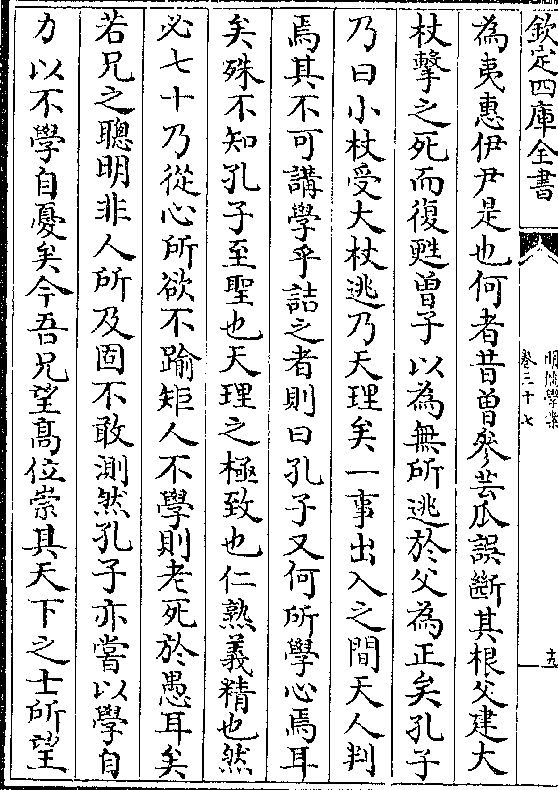 欽定四庫全書
明儒學案
卷三十七
十九
為夷惠伊尹是也何者昔曾參芸瓜誤斷其根父建大
杖擊之死而復甦曾子以為無所逃於父為正矣孔子
乃曰小杖受大杖逃乃天理矣一事出入之間天人判
焉其不可講學乎詰之者則曰孔子又何所學心焉耳
矣殊不知孔子至聖也天理之極致也仁熟義精也然
必七十乃從心所欲不踰矩人不學則老死於愚耳矣
若兄之聰明非人所及固不敢測然孔子亦嘗以學自
力以不學自憂矣今吾兄望高位崇其天下之士所望